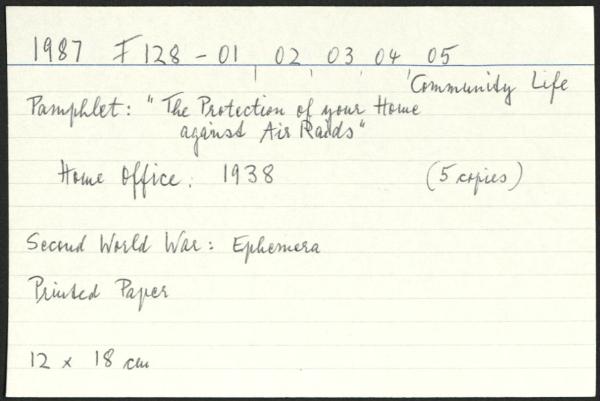 1987 F 128 - 01 02 03 04 05
Community Life
Pamphlet: "The Protection of your Home
against Air Raids"
Home Office: 1938 (5 copies)
Second World War: Ephemera
Printed Paper
12 x 18 cm